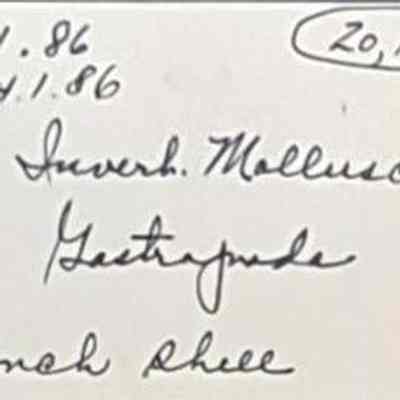 1.86 20,
4.1.86
Inverb. Mollusc
Gastrapoda
nch shell